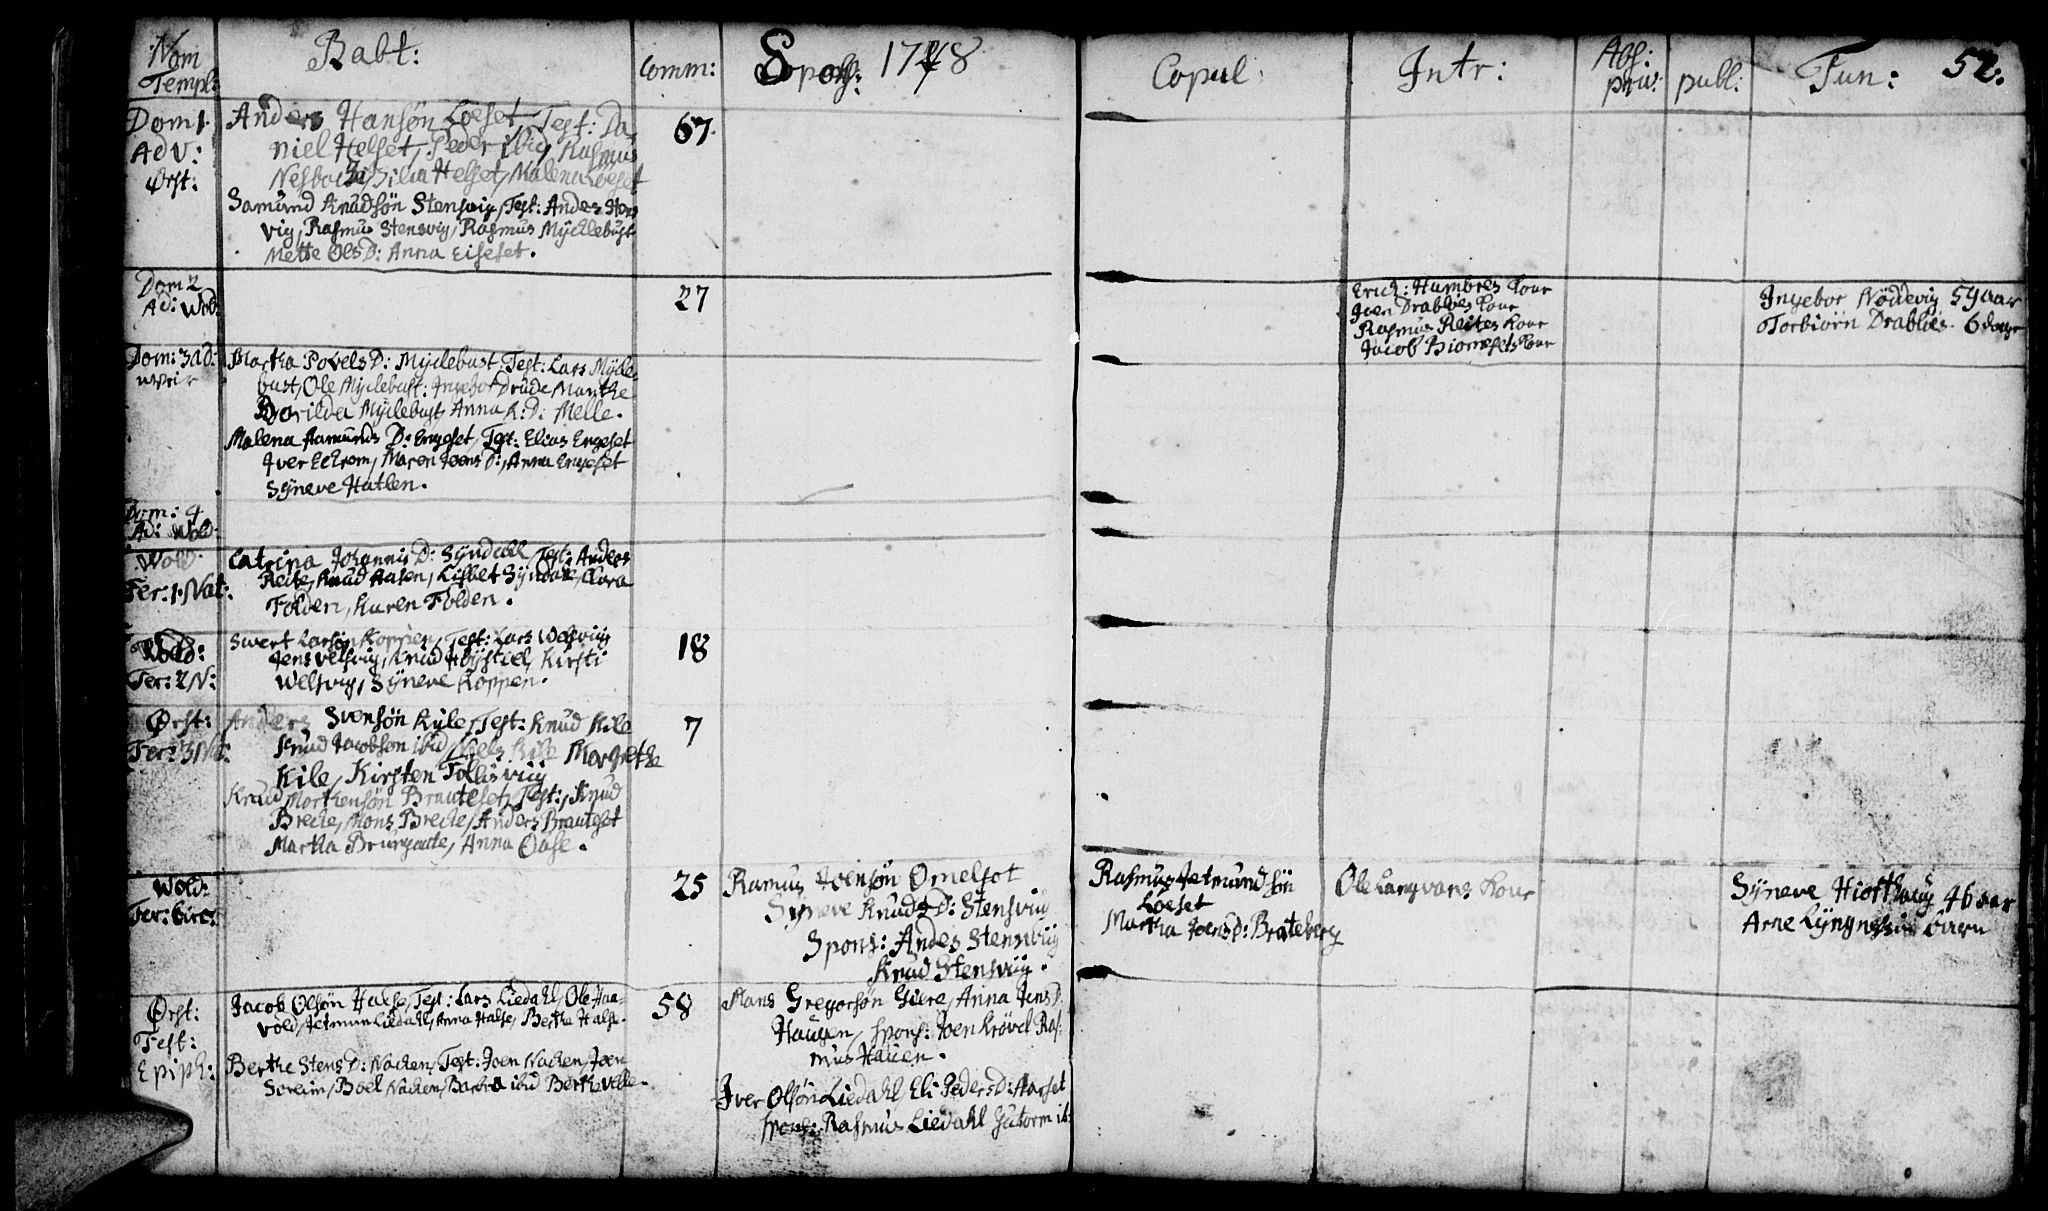 Nom Templ:
Babt:
Comm:
Spons: 1748
Copul:
Intr:
Abs: priv:
publ:
Fun:
52.
Dom 1.
Adv:
Ørst:
Anders Hansøn Løeset, Test: Da,
niel Helset, Peder ibid, Rasmus
Helset, Malena Løeset
67.
Samund Knudsøn Stensvig, Test: Andes Stens
vig, Rasmus Stensvig, Rasmus Mÿchlebust
Mette OlsD: Anna Eiseset.
Dom 2
Ad: Wold
27
Erich: Humbres Kone
Joen Drabløes Kone
Rasmus Reites Kone
Jacob Biornsets Kone
Ingebor Nøddevig 59 aar
Torbiørn Drabløes. 6 dage
Dom: 3 ad:
Martha PovelsD: Mÿclebust, Test: Lars Mÿcle-
bust, Ole Mÿclebust: Drude Marithe
Mÿclebust, Anna K:D: Melle.
Malena Aamunds D: Engeset, Test: Elias Engeset
Iver Echrem, Maren JoensD:, Anna Engeset
Sÿneve Hatlen.
Dom: 4
Ad: Wold.
Wold.
Fer: 1. Nat:
Catrina Johannis D: Sÿndahl, Test: Anders
Reite, Knud Aasen, Lisbet Sÿndahl, Clara
Folden, Karen Folden.
Wold:
Fer: 2 N:
Sivert Larsøn Koppen, Test: Lars Welsviig
Jens Velsvig, Knud Høÿstiel, Kirsti
Welsvig, Sÿneve Koppen.
18
Ørst:
Fer: 3 Na:
Anders Svensøn Kile, Test: Knud Kile
Knud Jacobsøn ibid, Niels Kile Morgrethe
Kile, Kirsten Follisviig
7
Knud Morthensøn Brauteset, Test:, Knud
Breche, Mons Breche, Anders Brauteset
Martha Brungaate, Anna Oase.
Wold:
Fer: Circ:
25
Ramus Joensøn Ømelfot
Sÿneve KnudsD: Stensviig
Spons: Andes Stensviig
Knud Stensviig.
Rasmus Jetmundsøn
Løeset
Martha JoensD: Brateberg
Ole Langvans Kone
Sÿneve Hiorthaug 46 aar
Arne Lÿngnes barn
Ørst:
Fest:
Epiph:
Jacob Olsøn Halse, Test: Lars Liedahl, Ole Haa-
vold, Jetmun Liedahl, Anna Halse, Berthe Halse.
58
Berthe StensD: Nachen, Test: Joen Nachen, Joen
Soreim, Boel Nachen, Barbra ibid Berthe Velle.
Mans Gregersøn Giere, Anna JensD.
Haugen, spons: Joen Krøvel Ras-
mus Hauen.
Iver Olsøn Liedahl, Eli PedersD: Aarset
spons: Rasmus Liedahl Gutorm ib: